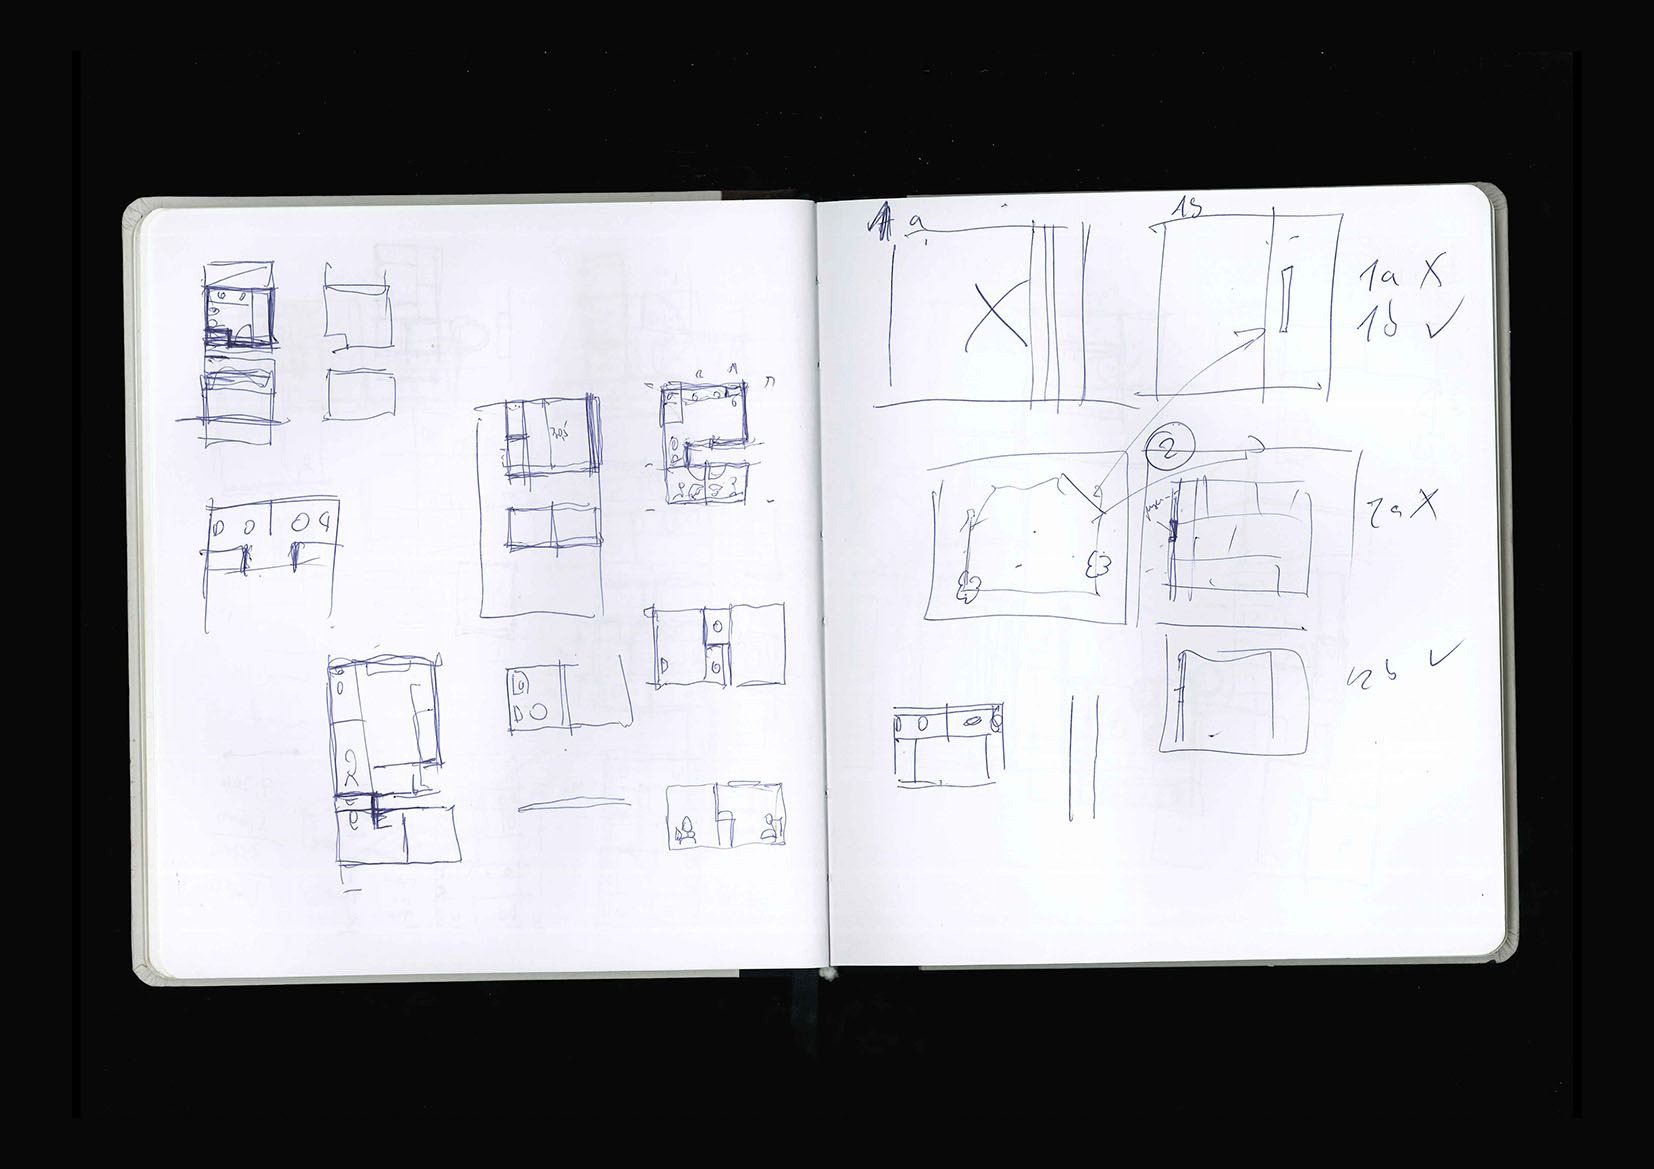 1a
1b
1a X
1b ✓
2
2a X
2b ✓